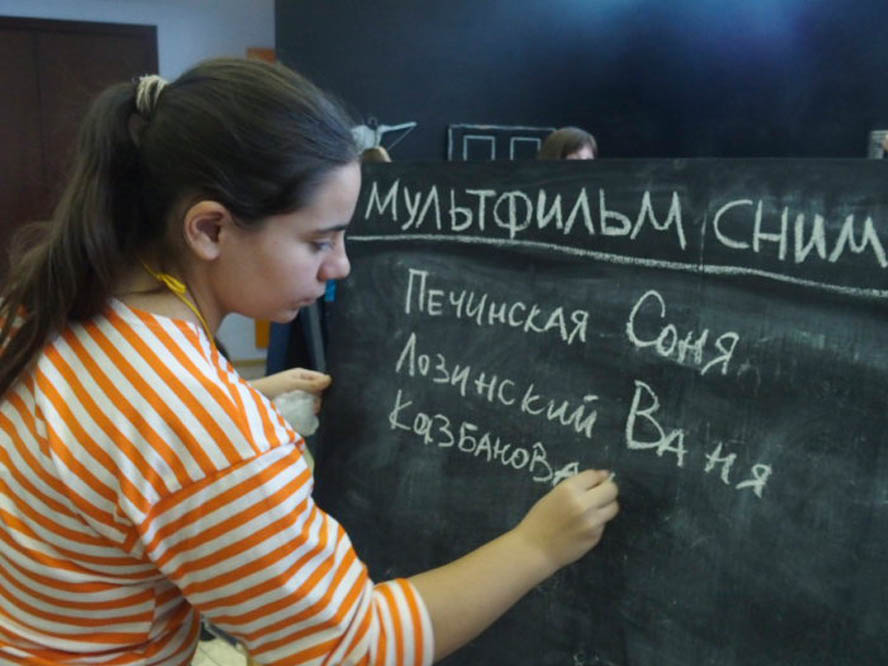 МУЛЬТФИЛЬМ СНИМ
Печинская Соня
Лозинский Ваня
Казбанова